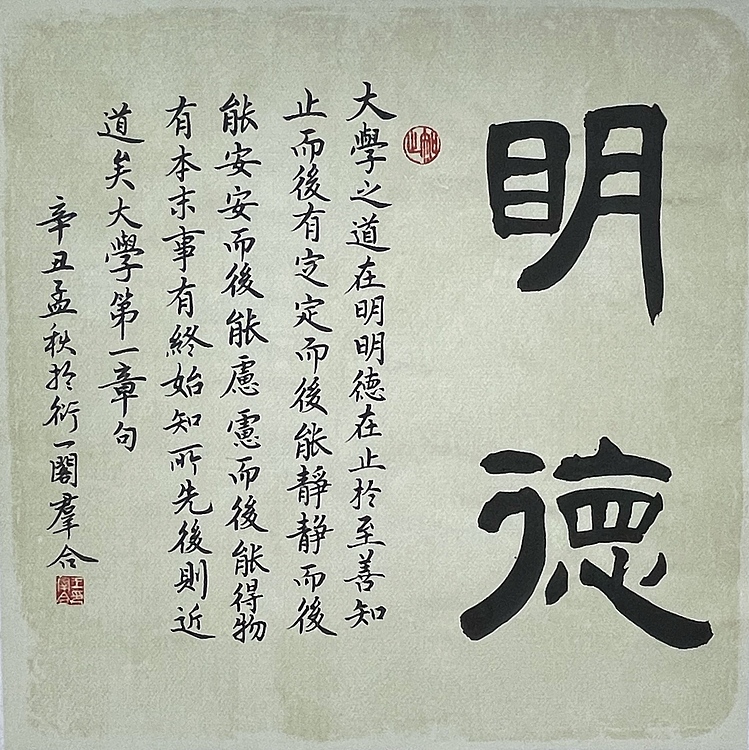 明德
大學之道在明明德在止於至善知
止而後有定定而後能靜靜而後
能安安而後能慮慮而後能得物
有本末事有終始知所先後則近
道矣大學第一章句
辛丑孟秋於衍一閣羣合